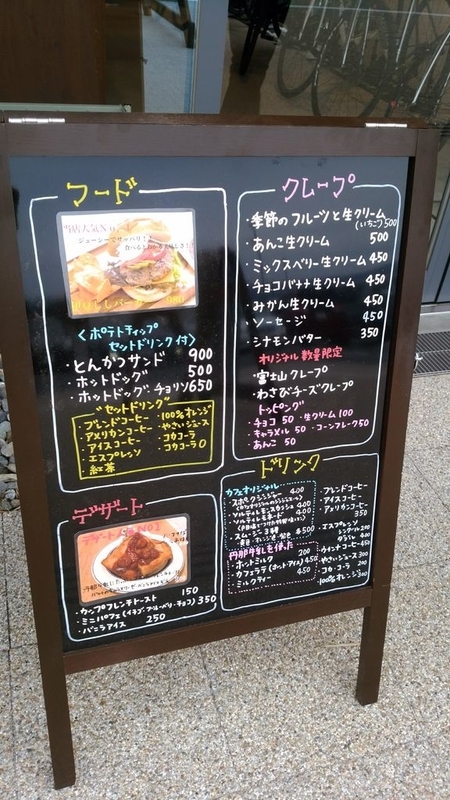 フード
当店人気No.1
ジューシーでサッパリ!
980
<ポテトチップ
セットドリンク付>
・とんかつサンド 900
・ホットドッグ 500
・ホットドッグ:チョリソ650
"セットドリンク"
・ブレンドコーヒー ・100%オレンジ
・アメリカンコーヒー ・やさいジュース
・アイスコーヒー ・コカコーラ
・エスプレッソ ・コカコーラ0
・紅茶
デザート
デザートNo1
・カップフレンチトースト 150
・ミニパフェ(イチゴ・ブルーベリー・チョコ) 350
・バニラアイス 250
クレープ
・季節のフルーツと生クリーム
(いちご)500
・あんこ生クリーム 500
・ミックスベリー生クリーム 450
・チョコバナナ生クリーム 450
・みかん生クリーム 450
・ソーセージ 450
・シナモンバター 350
オリジナル 数量限定
・富士山クレープ
・わさびチーズクレープ
トッピング
・チョコ 50 ・生クリーム100
・キャラメル 50 ・コーンフレーク50
・あんこ 50
ドリンク
カフェオリジナル
400
400
400
・スムージー3種 ¥500
丹那牛乳を使った
・ホットミルク 200
・カフェラテ(ホット・アイス) 450
・ミルクティー 450
・ブレンドコーヒー
・アイスコーヒー
・アメリカンコーヒー
350
・エスプレッソ
シングル200
ダブル 400
・ウインナコーヒー450
・やさいジュース 300
・コカ・コーラ 200
・100%オレンジ300